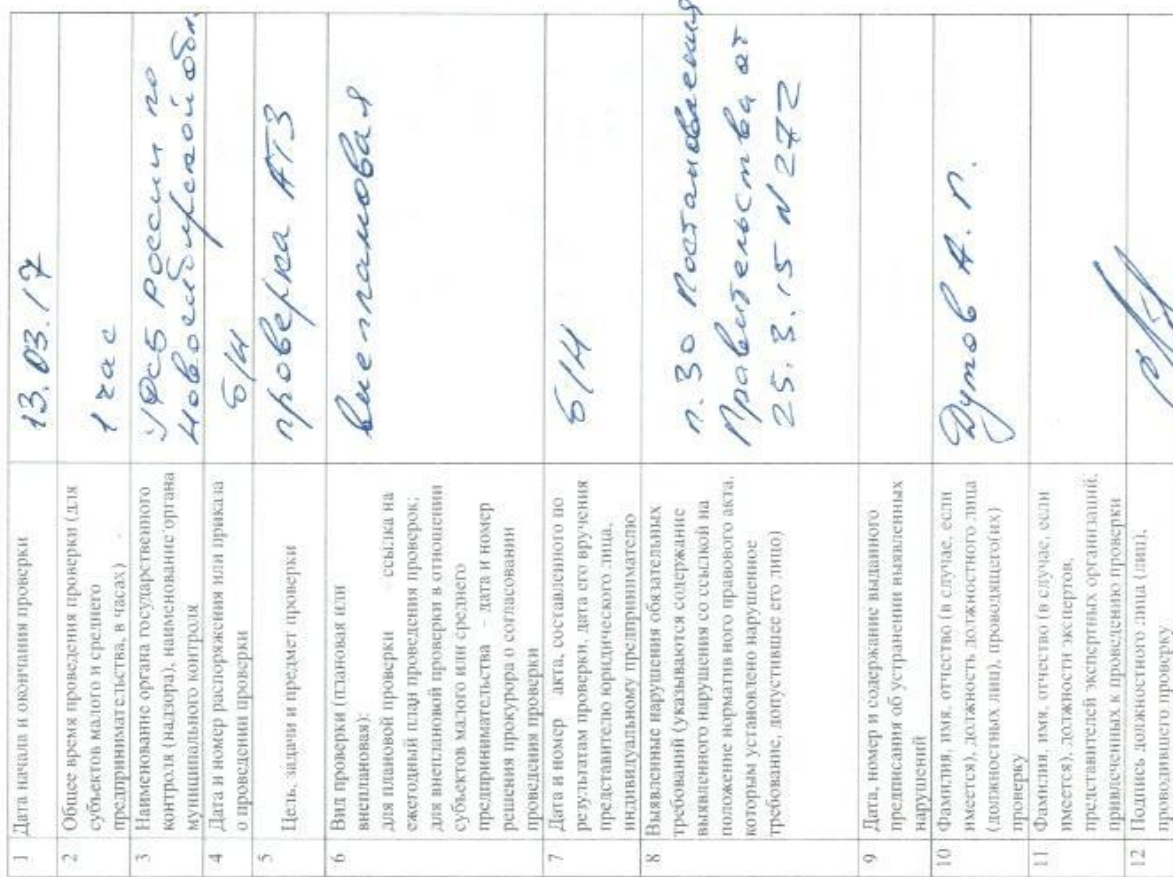 1 Дата начала и окончания проверки
13.03.17
2 Общее время проведения проверки (для
субъектов малого и среднего
предпринимательства, в часах)
1 час
3 Наименование органа государственного
контроля (надзора), наименование органа
муниципального контроля
УФСБ России по
Новосибирской обл.
4 Дата и номер распоряжения или приказа
о проведении проверки
б/н
5 Цель, задачи и предмет проверки
проверка АТЗ
6 Вид проверки (плановая или
внеплановая):
для плановой проверки ссылка на
ежегодный план проведения проверок;
для внеплановой проверки в отношении
субъектов малого или среднего
предпринимательства – дата и номер
решения прокурора о согласовании
проведения проверки
внеплановая
7 Дата и номер акта, составленного по
результатам проверки, дата его вручения
представителю юридического лица,
индивидуальному предпринимателю
б/н
8 Выявленные нарушения обязательных
требований (указываются содержание
выявленного нарушения со ссылкой на
положение нормативного правового акта,
которым установлено нарушенное
требование, допустившее его лицо)
п. 30 Постановления
Правительства от
25.3.15 N 272
9 Дата, номер и содержание выданного
предписания об устранении выявленных
нарушений
10 Фамилия, имя, отчество (в случае, если
имеется), должность должностного лица
(должностных лиц), проводящего(их)
проверку
Дутов А. П.
11 Фамилия, имя, отчество (в случае, если
имеется), должности экспертов,
представителей экспертных организаций,
привлеченных к проведению проверки
12 Подпись должностного лица (лиц),
проводившего проверку